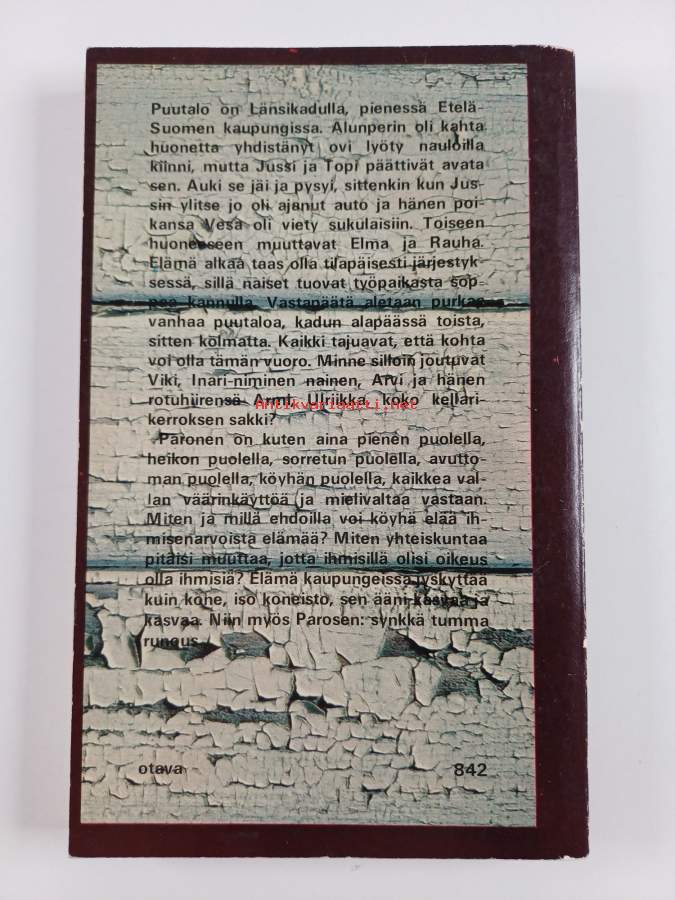 Puutalo on Länsikadulla, pienessä Etelä-
Suomen kaupungissa. Alunperin oli kahta
huonetta yhdistänyt ovi lyöty nauloilla
kiinni, mutta Jussi ja Topi päättivät avata
sen. Auki se jäi ja pysyi, sittenkin kun Jus-
sin ylitse jo oli ajanut auto ja hänen poi-
kansa Vesa oli viety sukulaisiin. Toiseen
huoneeseen muuttavat Elma ja Rauha.
Elämä alkaa taas olla tilapäisesti järjestyk-
sessä, sillä naiset tuovat työpaikasta sop-
paa kannulla. Vastapäätä aletaan purkaa
vanhaa puutaloa, kadun alapäässä toista,
sitten kolmatta. Kaikki tajuavat, että kohta
voi olla tämän vuoro. Minne silloin joutuvat
Viki, Inari-niminen nainen, Arvi ja hänen
rotuhiirensä Armi Ulriikka, koko kellari-
Antikvariaatti.net
kerroksen sakki?
Paronen on kuten aina pienen puolella,
heikon puolella, sorretun puolella, avutto-
man puolella, köyhän puolella, kaikkea val-
lan väärinkäyttöä ja mielivaltaa vastaan.
Miten ja millä ehdoilla voi köyhä elää ih-
misenarvoista elämää? Miten yhteiskuntaa
pitäisi muuttaa, jotta ihmisillä olisi oikeus
olla ihmisiä? Elämä kaupungeissa jyskyttää
kuin kone, iso koneisto, sen ääni kasvaa ja
kasvaa. Niin myös Parosen: synkkä tumma
runous.
otava
842